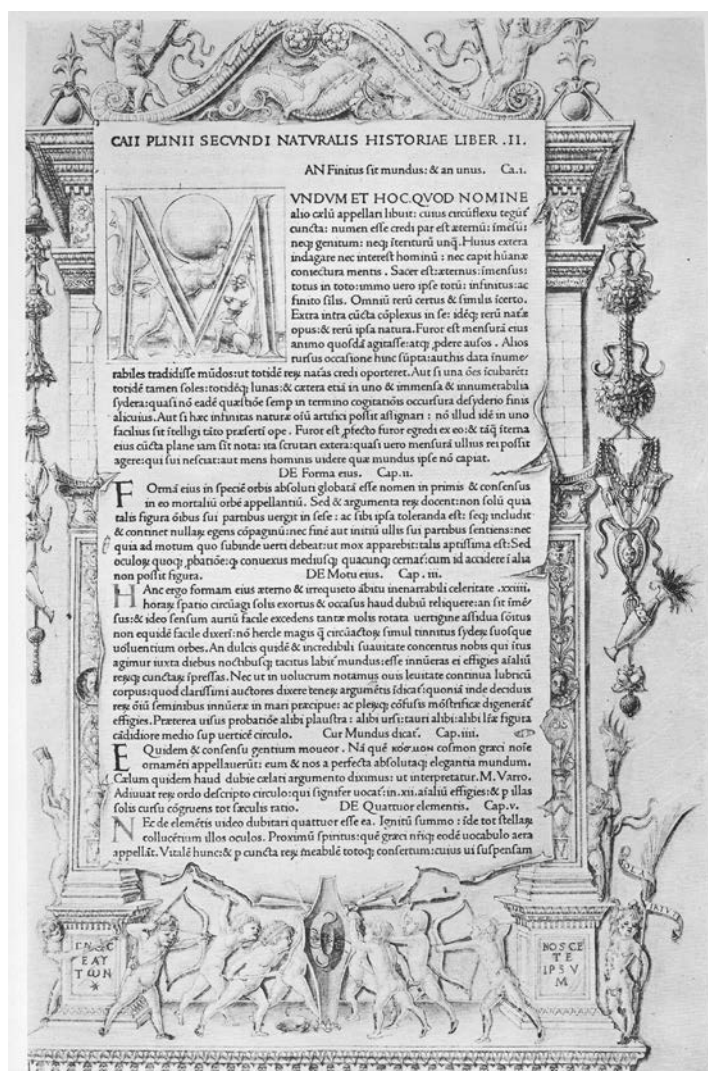 CAII PLINII SECVNDI NATVRALIS HISTORIAE LIBER .II.
AN Finitus sit mundus: & an unus. Ca.i.
MVNDVM ET HOC.QVOD NOMINE
alio cælū appellari libuit: cuius circūflexu
cuncta: numen esse credi par est æternū: īmēsū:
neq; genitum: neq; īteriturū unq̄. Huius extera
indagare nec interest hominū: nec capit hūanæ
coniectura mentis. Sacer est: æternus: īmensus:
totus in toto: immo uero ipse totū: infinitus: ac
finito silis. Omniū rerū certus & similis īcerto.
Extra intra cūcta cōplexus in se: idēq; rerū
opus: & rerū ipsa natura. Furor est mensurā eius
animo quosdā agitasse: atq; ꝓdere ausos. Alios
rursus occasione hinc sūpta: aut his data inume
rabiles tradidisse mūdos: ut totidē credi oporteret. Aut si una ōes īcubarēt:
totidē tamen soles: totidēq; lunas: & cætera etiā in uno & immensa & innumerabilia
sydera: quasi nō eadē quæstiōe semp in termino cogitatiōis occursura desyderio finis
alicuius. Aut si hæc infinitas naturæ oīū artifici possit assignari: nō illud idē in uno
facilius sit ītelligi tāto præserti ope. Furor est, ꝓfecto furor egredi ex eo: & tāq̄ īterna
eius cūcta plane iam sīt nota: ita scrutari extera: quasi uero mensurā ullius rei possit
agere: qui sui nesciat: aut mens hominis uidere quæ mundus ipse nō capiat.
DE Forma eius. Cap.ii.
FOrmā eius in speciē orbis absoluti globatā esse nomen in primis & consensus
in eo mortaliū orbē appellantiū. Sed & argumenta docent: non solū quia
talis figura ōibus sui partibus uergit in sese: ac sibi ipsa toleranda est: seq; includit
& continet nullaꝝ egens cōpaginū: nec finē aut initiū ullis sui partibus sentiens: nec
quia ad motum quo subinde uerti debeat: ut mox apparebit: talis aptissima est: Sed
oculoꝝ quoq; ꝓbatiōe: q; conuexus mediusq; quacunq; cernať: cum id accidere ī alia
non possit figura. DE Motu eius. Cap. iii.
HAnc ergo formam eius æterno & irrequieto ābitu inenarrabili celeritate .xxiiii.
horaꝝ spatio circūagi solis exortus & occasus haud dubiū reliquere: an sit īmē
sus: & ideo sensum auriū facile excedens tantæ molis rotata uertigine assidua sōitus
non equidē facile dixerī: nō hercle magis q̄ circūactoꝝ simul tinnitus sydeꝝ suosque
uoluentium orbes. An dulcis quidē & incredibili suauitate concentus nobis qui ītus
agimur iuxta diebus noctibusq; tacitus labiť mundus: esse innūeras ei effigies aīaliū
reꝝq; cunctaꝝ īpressas. Nec ut in uolucrum notamus ouis leuitate continua lubricū
corpus: quod clarissimi auctores dixere teneꝝ argumētis īdicať: quoniā inde deciduis
reꝝ ōiū seminibus innūeræ in mari præcipue: ac pleꝝq; cōfusis mōstrificæ digeneráť
effigies. Præterea uisus probatiōe alibi plaustra: alibi ursi: tauri alibi: alibi lræ figura
cādidiore medio sup uerticē circulo. Cur Mundus dicať. Cap.iiii.
EQuidem & consensu gentium moueor. Nā quē κόσμον cosmon græci noīe
ornamēti appellauerūt: eum & nos a perfecta absolutaq; elegantia mundum.
Cælum quidem haud dubie cælati argumento diximus: ut interpretatur. M. Varro.
Adiuuat reꝝ ordo descripto circulo: qui signifer uocať: in .xii. aīaliū effigies: & p illas
solis cursu cōgruens tot sæculis ratio. DE Quattuor elementis. Cap.v.
NEc de elemētis uideo dubitari quattuor esse ea. Ignitū summo: īde tot stellaꝝ
collucētium illos oculos. Proximū spiritus: quē græci nrīq; eodē uocabulo aera
appellāt. Vitalē hunc: & p cuncta reꝝ meabilē totoq; consertum: cuius ui suspensam
ΓΝΩΘ
ΕΑΥ
ΤΩΝ
NOSCE
TE
IPSV
M